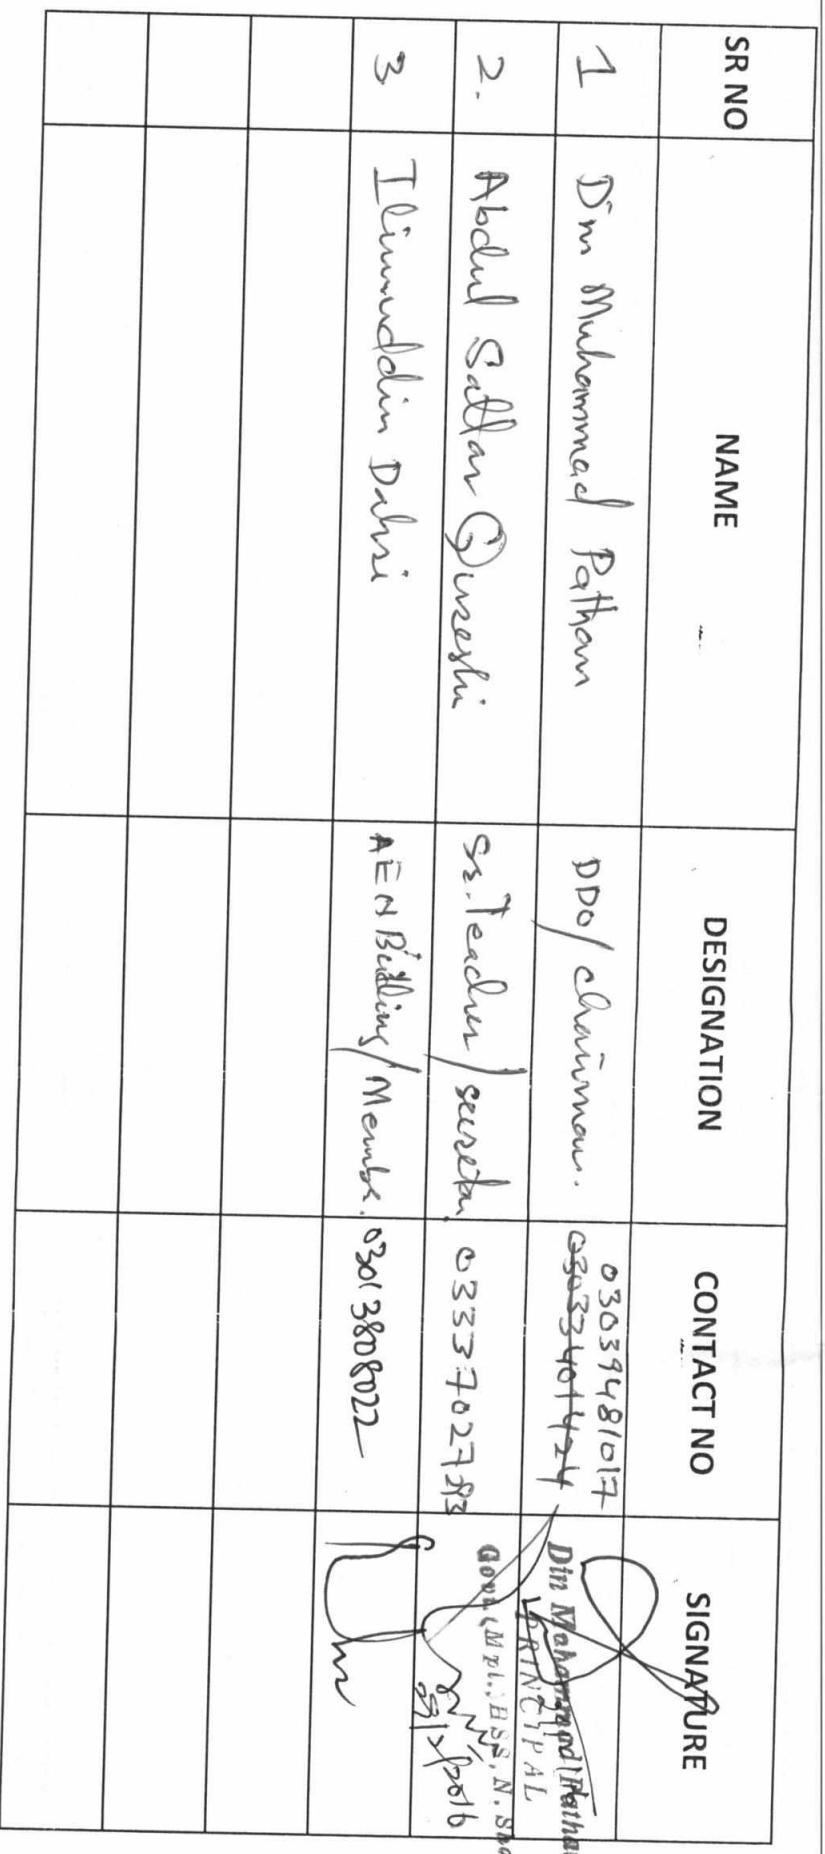 SR NO NAME DESIGNATION CONTACT NO SIGNATURE
1 Din Muhammad Pathan DDO/chairman. 03039481017
03033401424
Din Mohammad Pathan
PRINCIPAL
2. Abdul Sattar Qureshi Sr. Teacher/secretar 03337027293
Govt. (Mpl.) HSS, N. Sha
3 Ilimuddin Dahri AEN Building/Membe. 03013808022